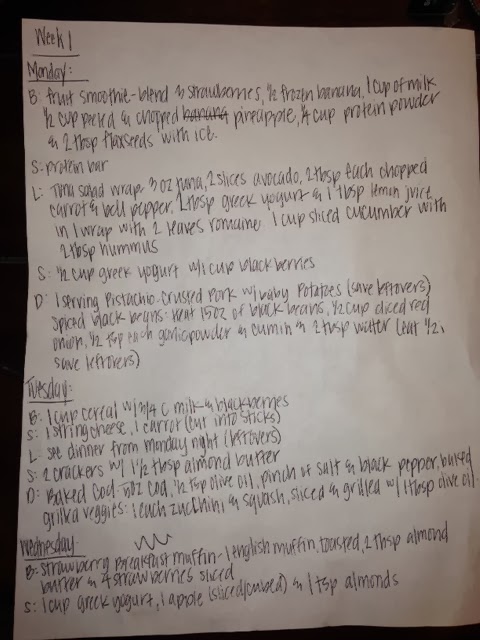 Week 1
Monday:
B: fruit smoothie - blend 3 strawberries, 1/2 frozen banana, 1 cup of milk
1/2 cup peeled & chopped banana pineapple, 1/4 cup protein powder
& 2 tbsp flaxseeds with ice.
S: protein bar
L: Tuna salad wrap. 3 oz tuna, 2 slices avocado, 2 tbsp each chopped
carrot & bell pepper, 2 tbsp greek yogurt & 1 tbsp lemon juice
in 1 wrap with 2 leaves romaine. 1 cup sliced cucumber with
2 tbsp hummus
S: 1/2 cup greek yogurt w/ 1 cup blackberries
D: 1 serving Pistachio-Crusted Pork w/ Baby Potatoes (save leftovers)
Spiced black beans: heat 15 oz of black beans, 1/2 cup diced red
onion, 1/2 tsp each garlic powder & cumin & 2 tbsp water (eat 1/2,
save leftovers)
Tuesday:
B: 1 cup cereal w/ 3/4 c milk & blackberries
S: 1 string cheese, 1 carrot (cut into sticks)
L: see dinner from Monday night (leftovers)
S: 2 crackers w/ 1 1/2 tbsp almond butter
D: Baked Cod - 5 oz cod, 1/2 tsp olive oil, pinch of salt & black pepper, baked
grilled veggies: 1 each zucchini & squash, sliced & grilled w/ 1 tbsp olive oil.
Wednesday:
B: Strawberry Breakfast muffin - 1 english muffin, toasted, 2 tbsp almond
butter & 4 strawberries sliced
S: 1 cup greek yogurt, 1 apple (sliced/cubed) & 1 tsp almonds